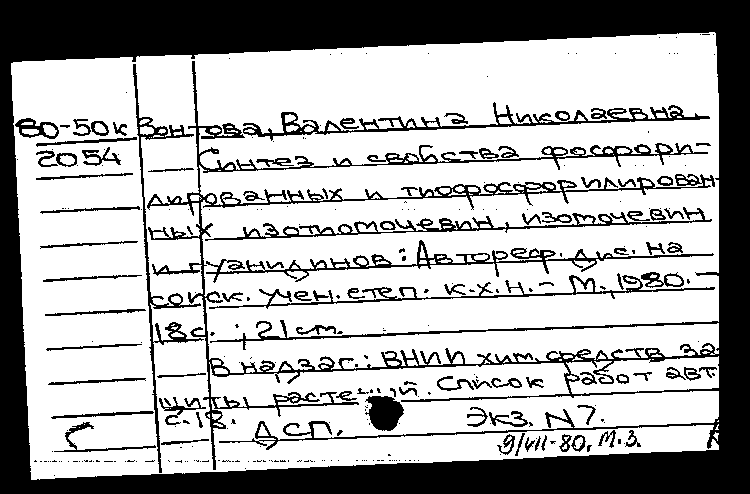 80-50к Вонтова, Валентина Николаевна.
2054 Синтез и свойства фосфори-
лированных и тиофосфорилирован-
ных изотиомочевин, изомочевин
и гуанидинов: Автореф. дис. на
соиск. учен. степ. к.х.н. - М., 1980. -
18с. ; 21 см.
В надзаг.: ВНИИ хим. средств за-
щиты растений. Список работ авт
с.18. ДСП. Экз. N7.
9/VII-80. М.З.